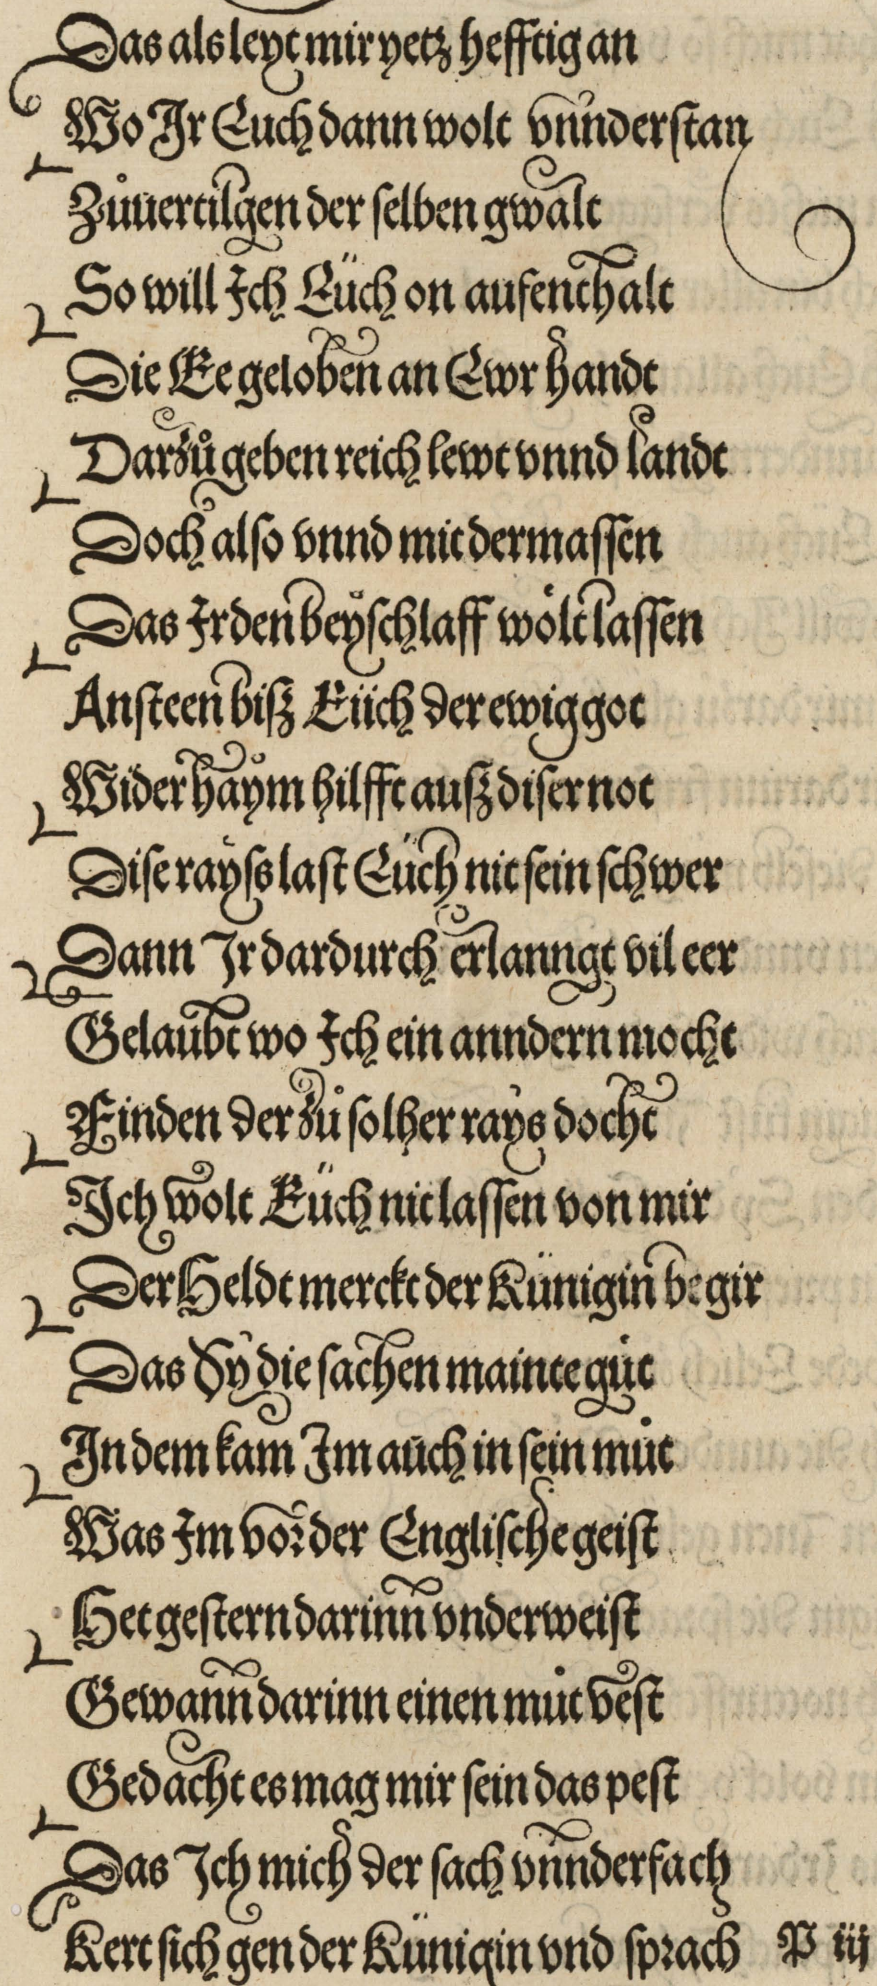 Das als leyt mir yetz hefftig an
Wo Jr Euch dann wolt vnnderstan
Zůuertilgen der selben gwalt
So will Ich Eüch on aufenthalt
Die Ee geloben an Ewr handt
Darzů geben reich lewt vnnd landt
Doch also vnnd mit dermassen
Das Ir den beyschlaff wölt lassen
Ansteen bisz Eüch der ewig got
Wider haym hilfft ausz diser not
Dise rayss last Eüch nit sein schwer
Dann Jr dardurch erlanngt vil eer
Gelaubt wo Ich ein anndern mocht
Finden der zů solher rays docht
Ich wolt Eüch nit lassen von mir
Der Heldt merckt der Künigin begir
Das Sy die sachen mainte gůt
In dem kam Im auch in sein můt
Was Im vor der Englische geist
Het gestern darinn vnderweist
Gewann darinn einen můt vest
Gedacht es mag mir sein das pest
Das Ich mich der sach vnnderfach
Kert sich gen der Künigin vnd sprach P iij